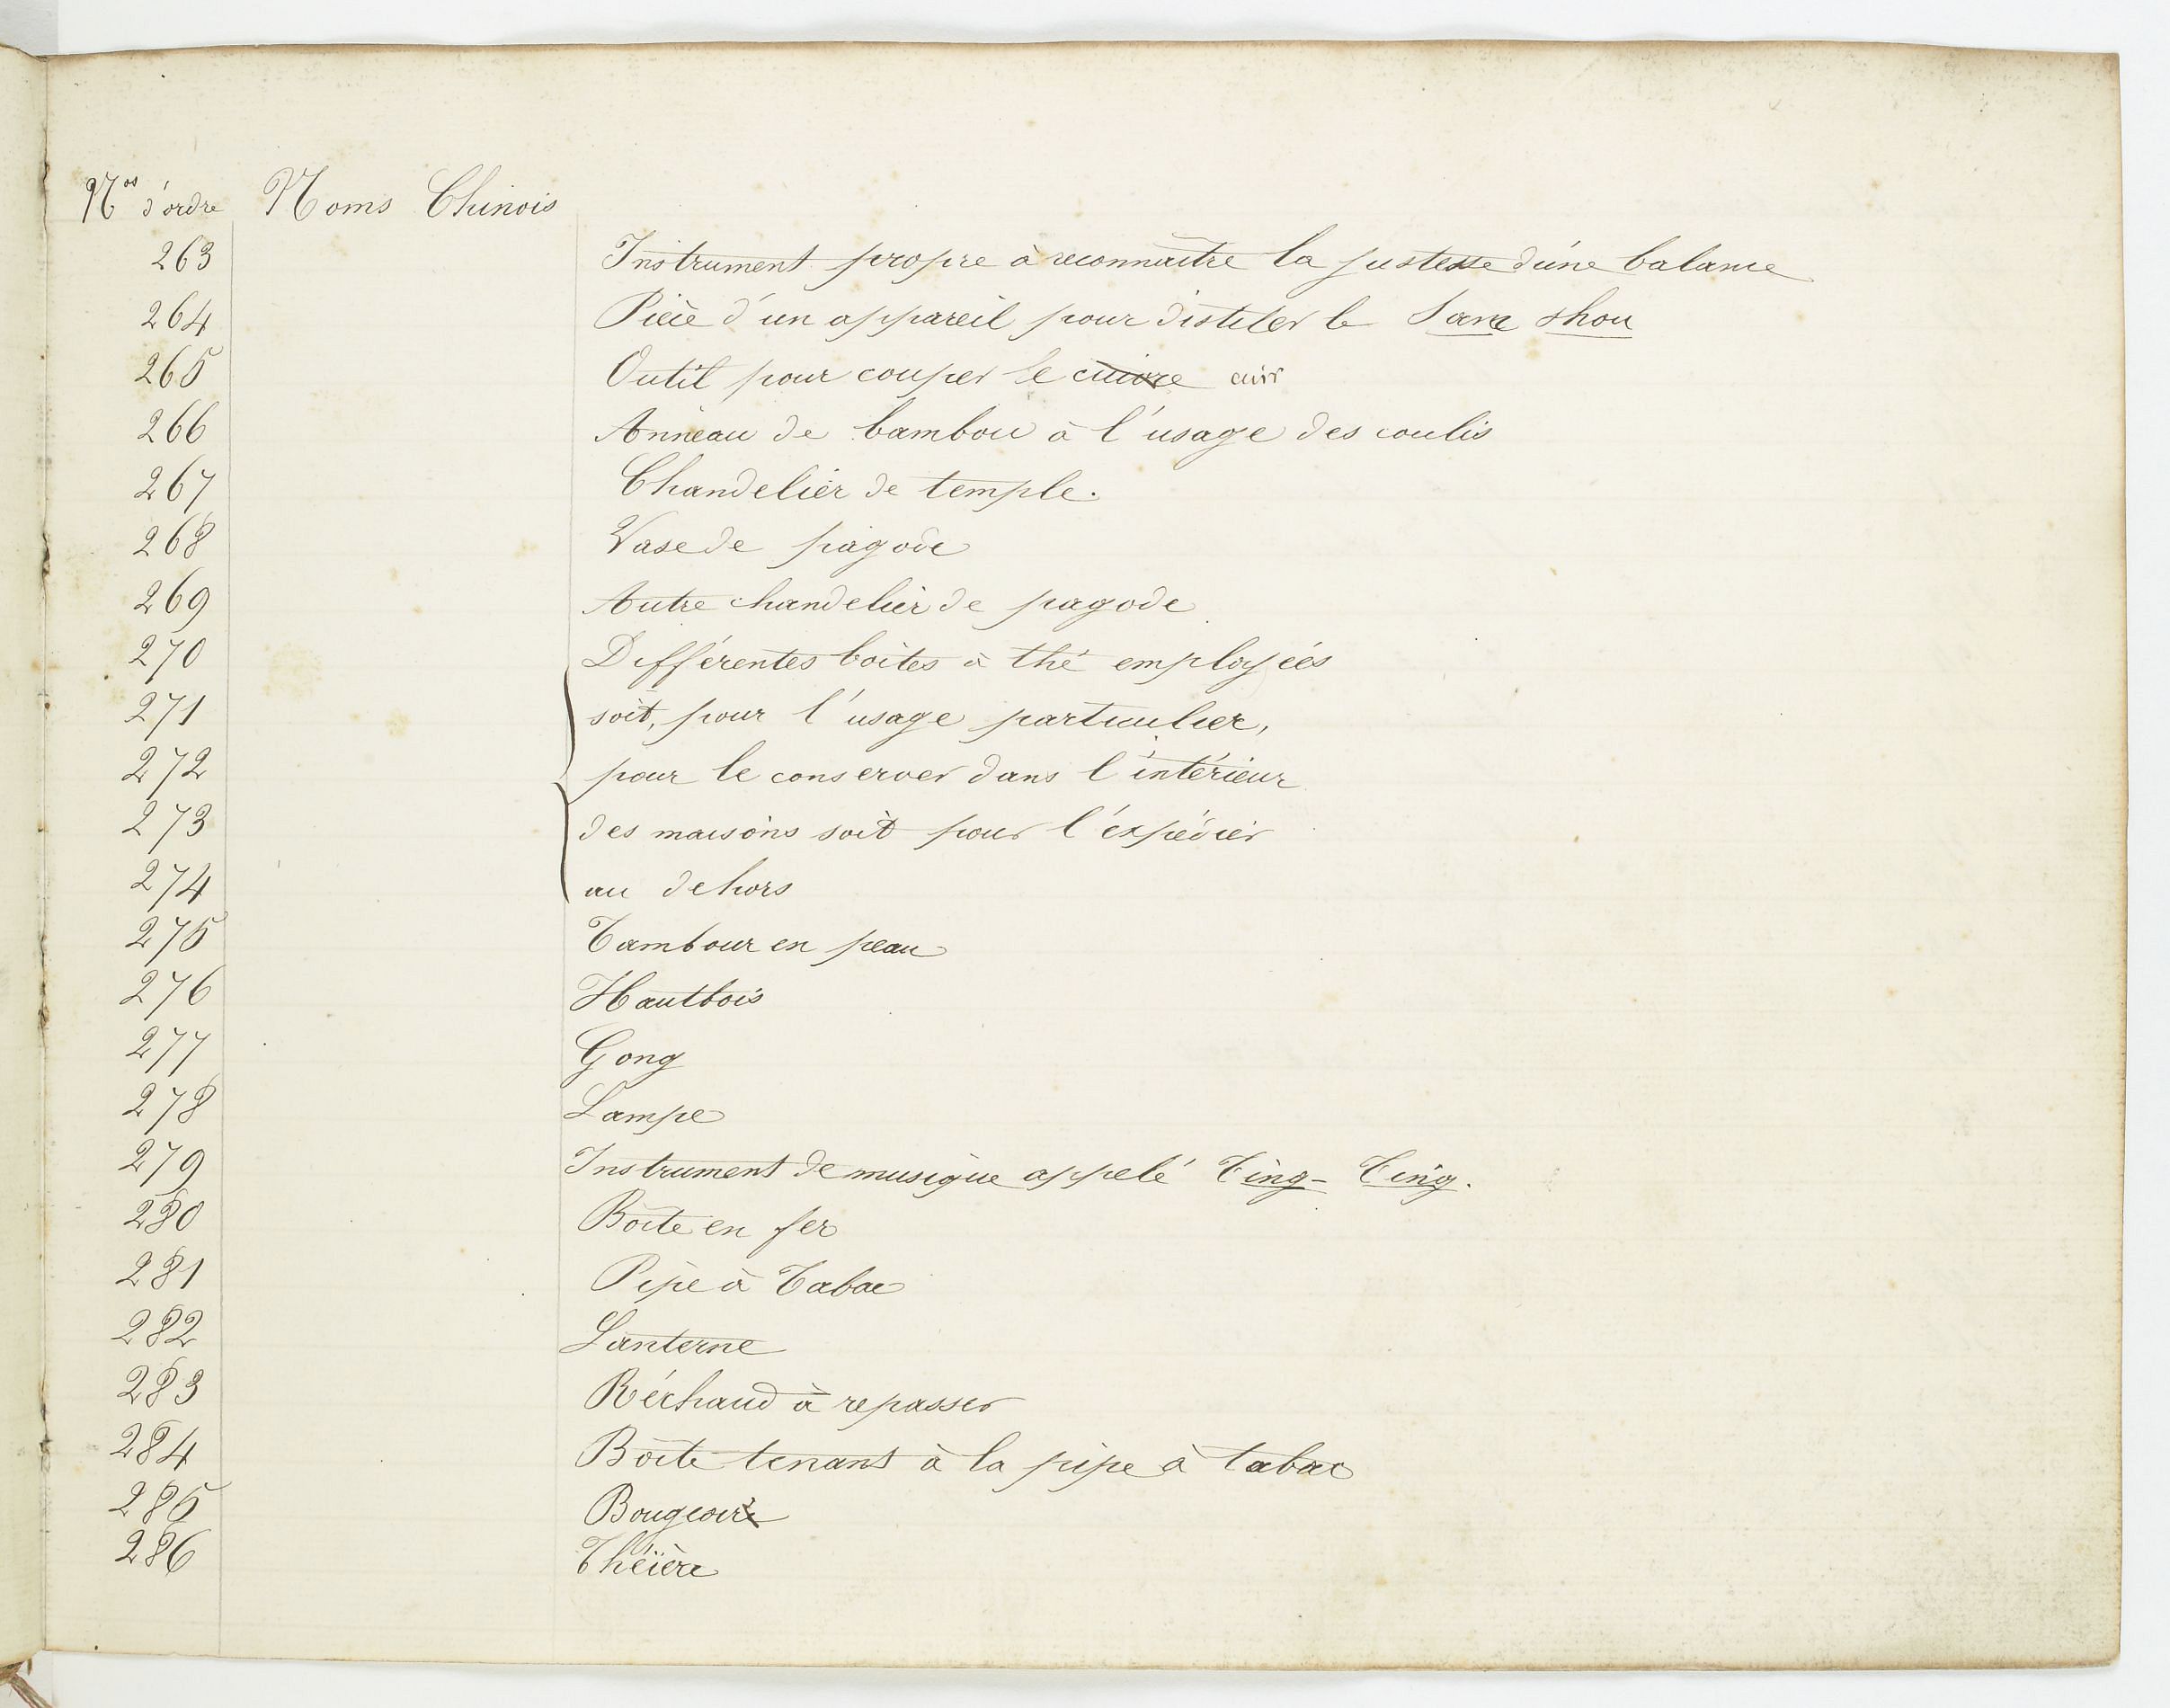 Nos d'ordre Noms Chinois
263 Instrument propre à reconnaître la justesse d'une balance
264 Pièce d'un appareil pour distiler le Sam shou
265 Outil pour couper le cuivre cuir
266 Anneau de bambou à l'usage des coulis
267 Chandelier de temple.
268 Vase de pagode
269 Autre chandelier de pagode
270 Différentes boites à thé employées
271 soit, pour l'usage particulier,
272 pour le conserver dans l'intérieur
273 des maisons soit pour l'expédier
274 au dehors
275 Tambour en peau
276 Hautbois
277 Gong
278 Lampe
279 Instrument de musique appelé Ting-Ting.
280 Boîte en fer
281 Pipe à Tabac
282 Lanterne
283 Réchaud à repasser
284 Boîte tenant à la pipe à tabac
285 Bougeoir
286 Théière